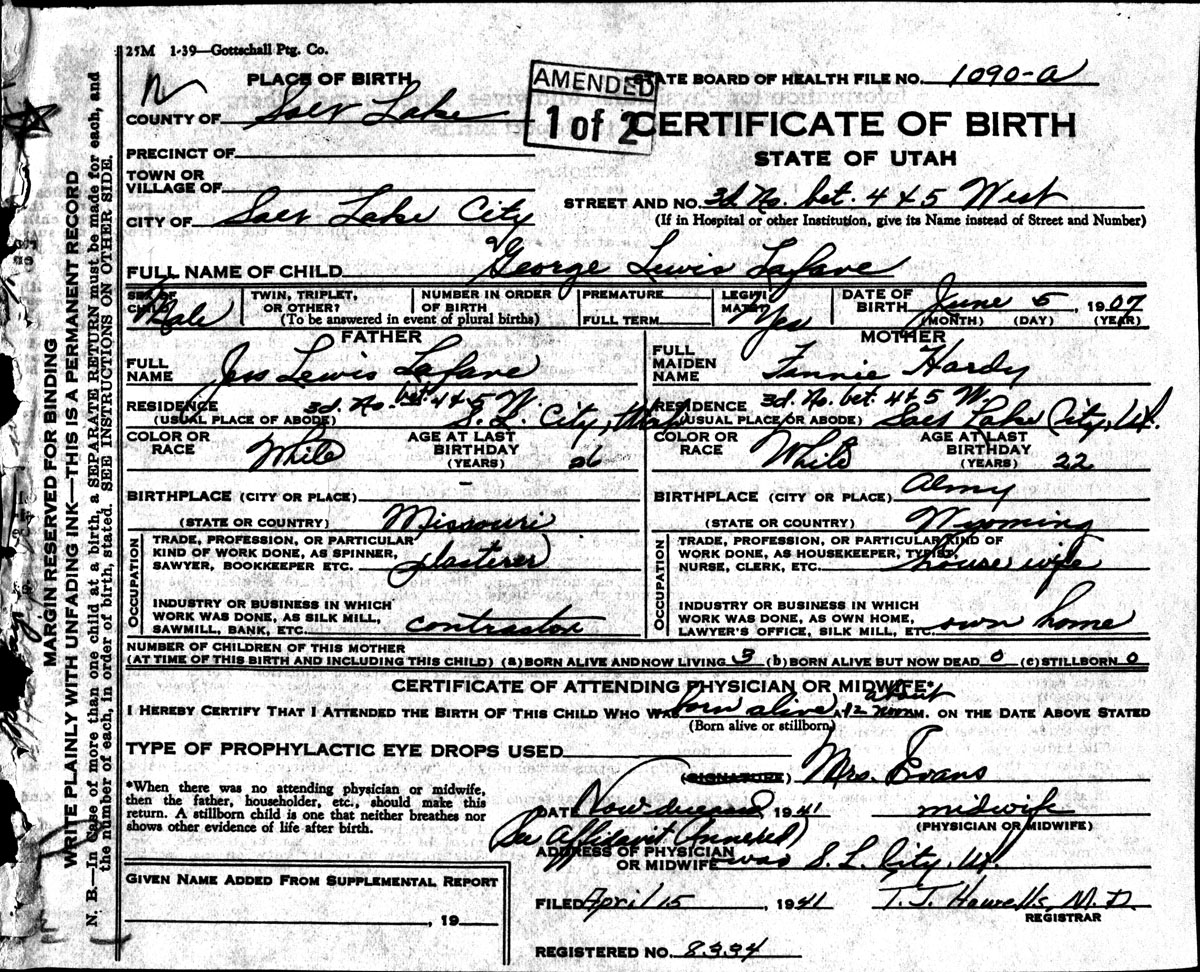 25M 1-39—Gottschall Ptg. Co.
PLACE OF BIRTH
AMENDED
1 of 2
STATE BOARD OF HEALTH FILE NO. 1090-a
COUNTY OF Salt Lake
CERTIFICATE OF BIRTH
PRECINCT OF
STATE OF UTAH
TOWN OR VILLAGE OF
STREET AND NO. 3d. No. bet. 4 & 5 West
CITY OF Salt Lake City
(If in Hospital or other Institution, give its Name instead of Street and Number)
FULL NAME OF CHILD George Lewis Lafave
SEX OF CHILD Male
TWIN, TRIPLET, OR OTHER?
NUMBER IN ORDER OF BIRTH
(To be answered in event of plural births)
PREMATURE
FULL TERM
LEGITIMATE? Yes
DATE OF BIRTH June 5, 1907
(MONTH) (DAY) (YEAR)
FATHER
FULL NAME Jess Lewis Lafave
RESIDENCE 3d. No. bet. 4 & 5 W.
(USUAL PLACE OF ABODE) S. L. City, Utah
COLOR OR RACE White
AGE AT LAST BIRTHDAY (YEARS) 26
BIRTHPLACE (CITY OR PLACE) –
(STATE OR COUNTRY) Missouri
OCCUPATION
TRADE, PROFESSION, OR PARTICULAR
KIND OF WORK DONE, AS SPINNER,
SAWYER, BOOKKEEPER ETC. plasterer
INDUSTRY OR BUSINESS IN WHICH
WORK WAS DONE, AS SILK MILL,
SAWMILL, BANK, ETC. contractor
MOTHER
FULL MAIDEN NAME Fannie Hardy
RESIDENCE 3d. No. bet. 4 & 5 W.
(USUAL PLACE OR ABODE) Salt Lake City, Ut.
COLOR OR RACE White
AGE AT LAST BIRTHDAY (YEARS) 22
BIRTHPLACE (CITY OR PLACE) Almy
(STATE OR COUNTRY) Wyoming
OCCUPATION
TRADE, PROFESSION, OR PARTICULAR KIND OF
WORK DONE, AS HOUSEKEEPER, TYPIST,
NURSE, CLERK, ETC. house wife
INDUSTRY OR BUSINESS IN WHICH
WORK WAS DONE, AS OWN HOME,
LAWYER'S OFFICE, SILK MILL, ETC. own home
NUMBER OF CHILDREN OF THIS MOTHER
(AT TIME OF THIS BIRTH AND INCLUDING THIS CHILD) (a) BORN ALIVE AND NOW LIVING 3 (b) BORN ALIVE BUT NOW DEAD 0 (c) STILLBORN 0
CERTIFICATE OF ATTENDING PHYSICIAN OR MIDWIFE*
I HEREBY CERTIFY THAT I ATTENDED THE BIRTH OF THIS CHILD WHO WAS born alive, about 12 noon M. ON THE DATE ABOVE STATED
(Born alive or stillborn)
TYPE OF PROPHYLACTIC EYE DROPS USED
(SIGNATURE) Mrs. Evans
*When there was no attending physician or midwife,
then the father, householder, etc., should make this
return. A stillborn child is one that neither breathes nor
shows other evidence of life after birth.
DATE (Now deceased, 1941 midwife
(PHYSICIAN OR MIDWIFE)
See Affidavit Annexed)
ADDRESS OF PHYSICIAN
OR MIDWIFE was S. L. City, Ut.
GIVEN NAME ADDED FROM SUPPLEMENTAL REPORT
, 19
FILED April 15, 1941
T. J. Howells, M. D.
REGISTRAR
REGISTERED NO. 8334
MARGIN RESERVED FOR BINDING
WRITE PLAINLY WITH UNFADING INK—THIS IS A PERMANENT RECORD
N. B.—In case of more than one child at a birth, a SEPARATE RETURN must be made for each, and
the number of each, in order of birth, stated. SEE INSTRUCTIONS ON OTHER SIDE.